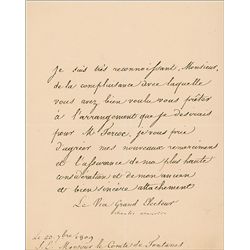 Je suis très reconnoissant, Monsieur,
de la complaisance avec laquelle
vous avez bien voulu vous prêter
à l'arrangement que je désirais
pour Mr je vous prie
d'agréer mes nouveaux remerciemens
et l'assurance de ma plus haute
considération et de mon ancien
et bien sincère attachement
Le Vice Grand Electeur
Le 20. 1809
Monsieur le Comte de Fontanes